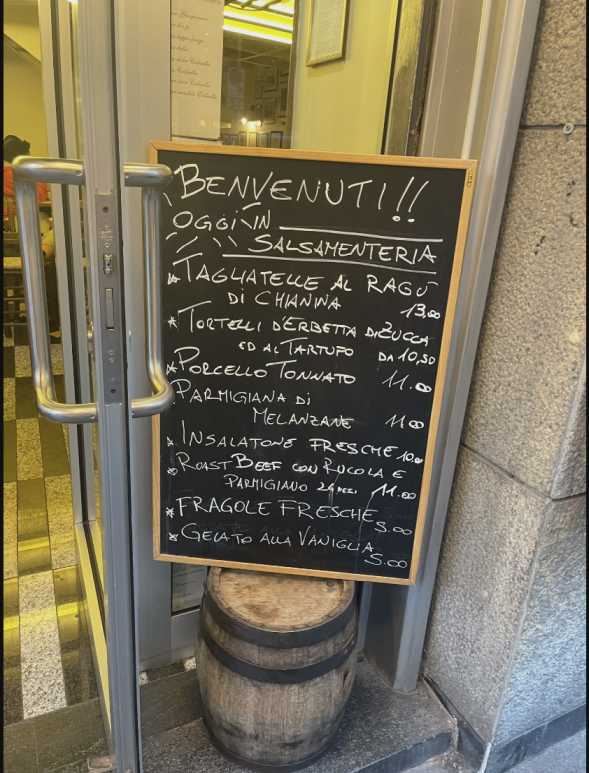 BENVENUTI!!
OGGI IN
SALSAMENTERIA
* TAGLIATELLE AL RAGÙ
DI CHIANINA 13,00
* TORTELLI D'ERBETTA DI ZUCCA
ED AL TARTUFO DA 10,50
* PORCELLO TONNATO 11.00
PARMIGIANA DI
MELANZANE 11.00
* INSALATONE FRESCHE 10.00
ROAST BEEF CON RUCOLA E
PARMIGIANO 24 MESI 11.00
* FRAGOLE FRESCHE 5.00
* GELATO ALLA VANIGLIA
5.00